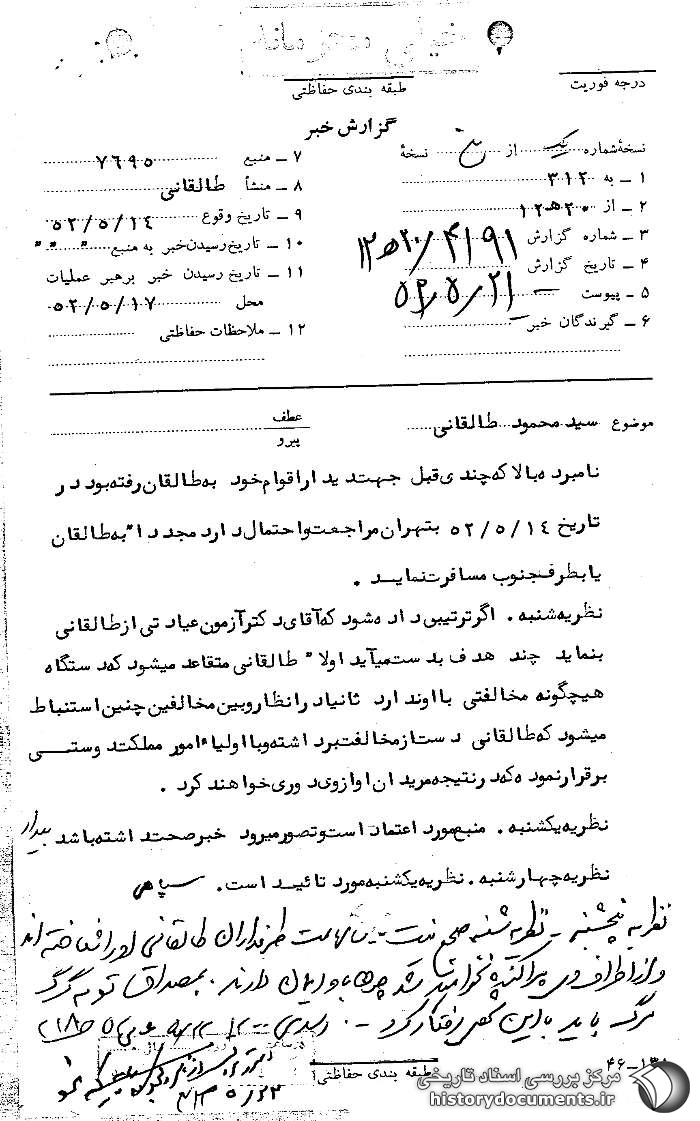 خیلی محرمانه
درجه فوریت
طبقه بندی حفاظتی
گزارش خبر
نسخهٔ شماره یک از نسخهٔ
۱ ـ به ۳۱۲
۲ ـ از ۲۰ ه‍ ۱۲
۳ ـ شماره گزارش ۴۱۹۱/ ۲۰ ه‍ ۱۲
۴ ـ تاریخ گزارش ۵۲/۵/۲۱
۵ ـ پیوست
۶ ـ گیرندگان خبر
۷ ـ منبع ۷۶۹۵
۸ ـ منشأ طالقانی
۹ ـ تاریخ وقوع ۵۲/۵/۱۴
۱۰ ـ تاریخ رسیدن خبر به منبع " " "
۱۱ ـ تاریخ رسیدن خبر برهبر عملیات
محل ۵۲/۵/۱۷
۱۲ ـ ملاحظات حفاظتی
موضوع سید محمود طالقانی
عطف
پیرو
نامبرده بالا که چندی قبل جهت دیدار اقوام خود به طالقان رفته بود در
تاریخ ۵۲/۵/۱۴ بتهران مراجعت و احتمال دارد مجددا" به طالقان
یا بطرف جنوب مسافرت نماید .
نظریه شنبه . اگر ترتیبی داده شود که آقای دکتر آزمون عیادتی از طالقانی
بنماید چند هدف بدست میآید اولا" طالقانی متقاعد میشود که دستگاه
هیچگونه مخالفتی با او ندارد ثانیا در انظار و بین مخالفین چنین استنباط
میشود که طالقانی دست از مخالفت برداشته و با اولیاء امور مملکت دوستی
برقرار نموده که در نتیجه مریدان او از وی دوری خواهند کرد .
نظریه یکشنبه . منبع مورد اعتماد است و تصور میرود خبر صحت داشته باشد بیدار
نظریه چهارشنبه . نظریه یکشنبه مورد تائید است . سپاهی
نظریه پنجشنبه - نظریه شنبه صحیح نیست طرفداران طالقانی او را شناخته اند
و از اطراف وی پراکنده نخواهند شد چون باو ایمان دارند . بمصداق توبه گرگ
مرگ باید با این کس رفتار کرد -
طبقه بندی حفاظتی
۴۶-۱۳۸
مرکز بررسی اسناد تاریخی
historydocuments.ir